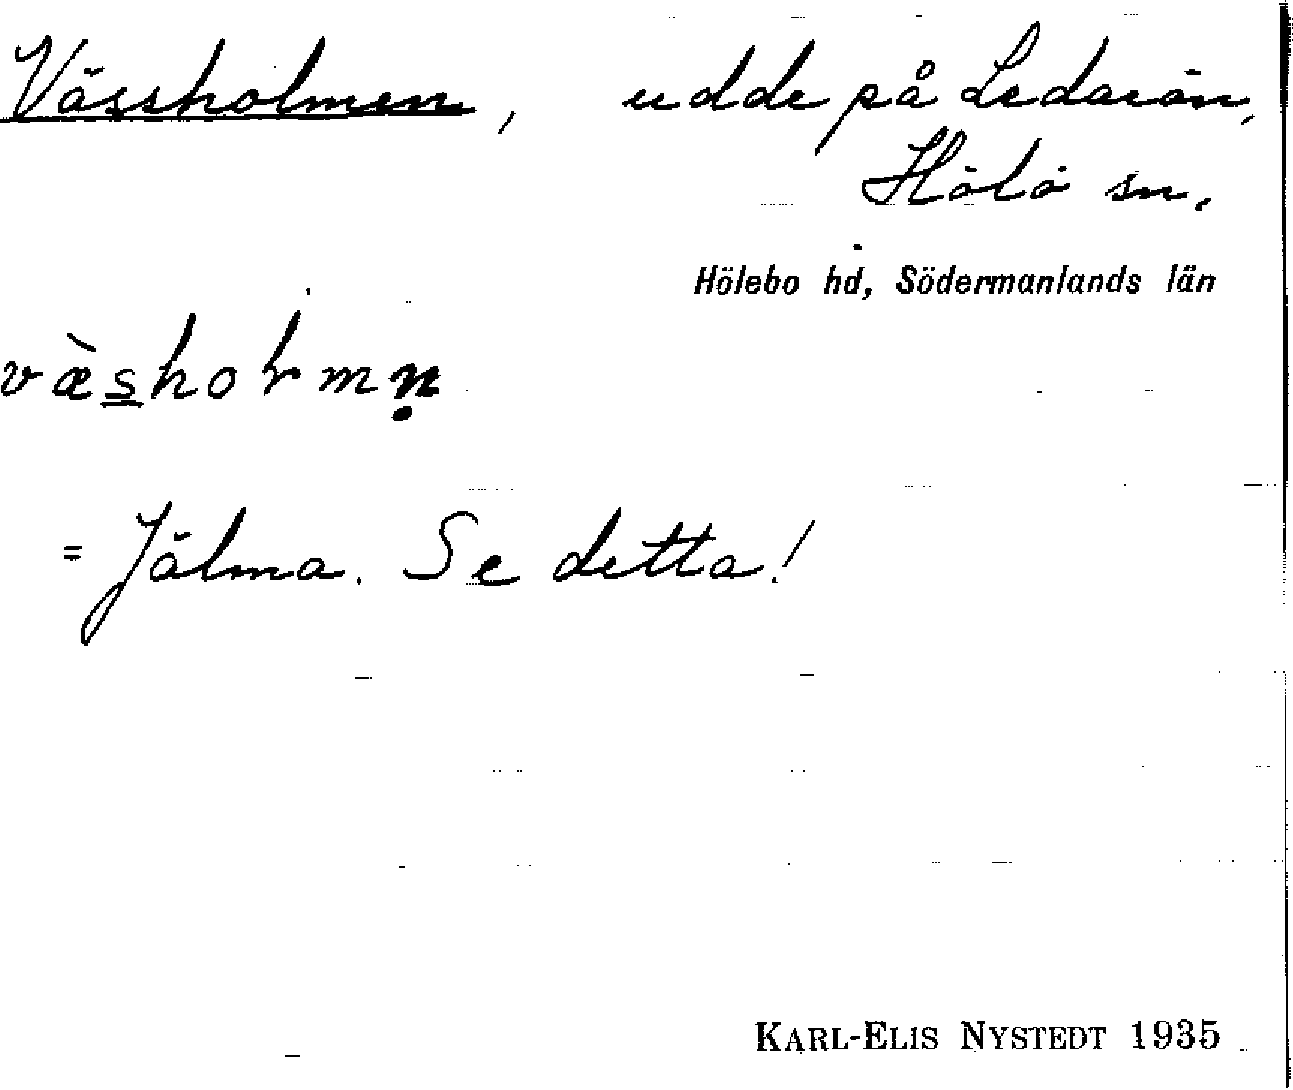 Vässholmen, udde på Ledarön,
Hölö sn.
Hölebo hd, Södermanlands län
væ̀s̲hoɫmṇ
= Jälma. Se detta!
KARL-ELIS NYSTEDT 1935